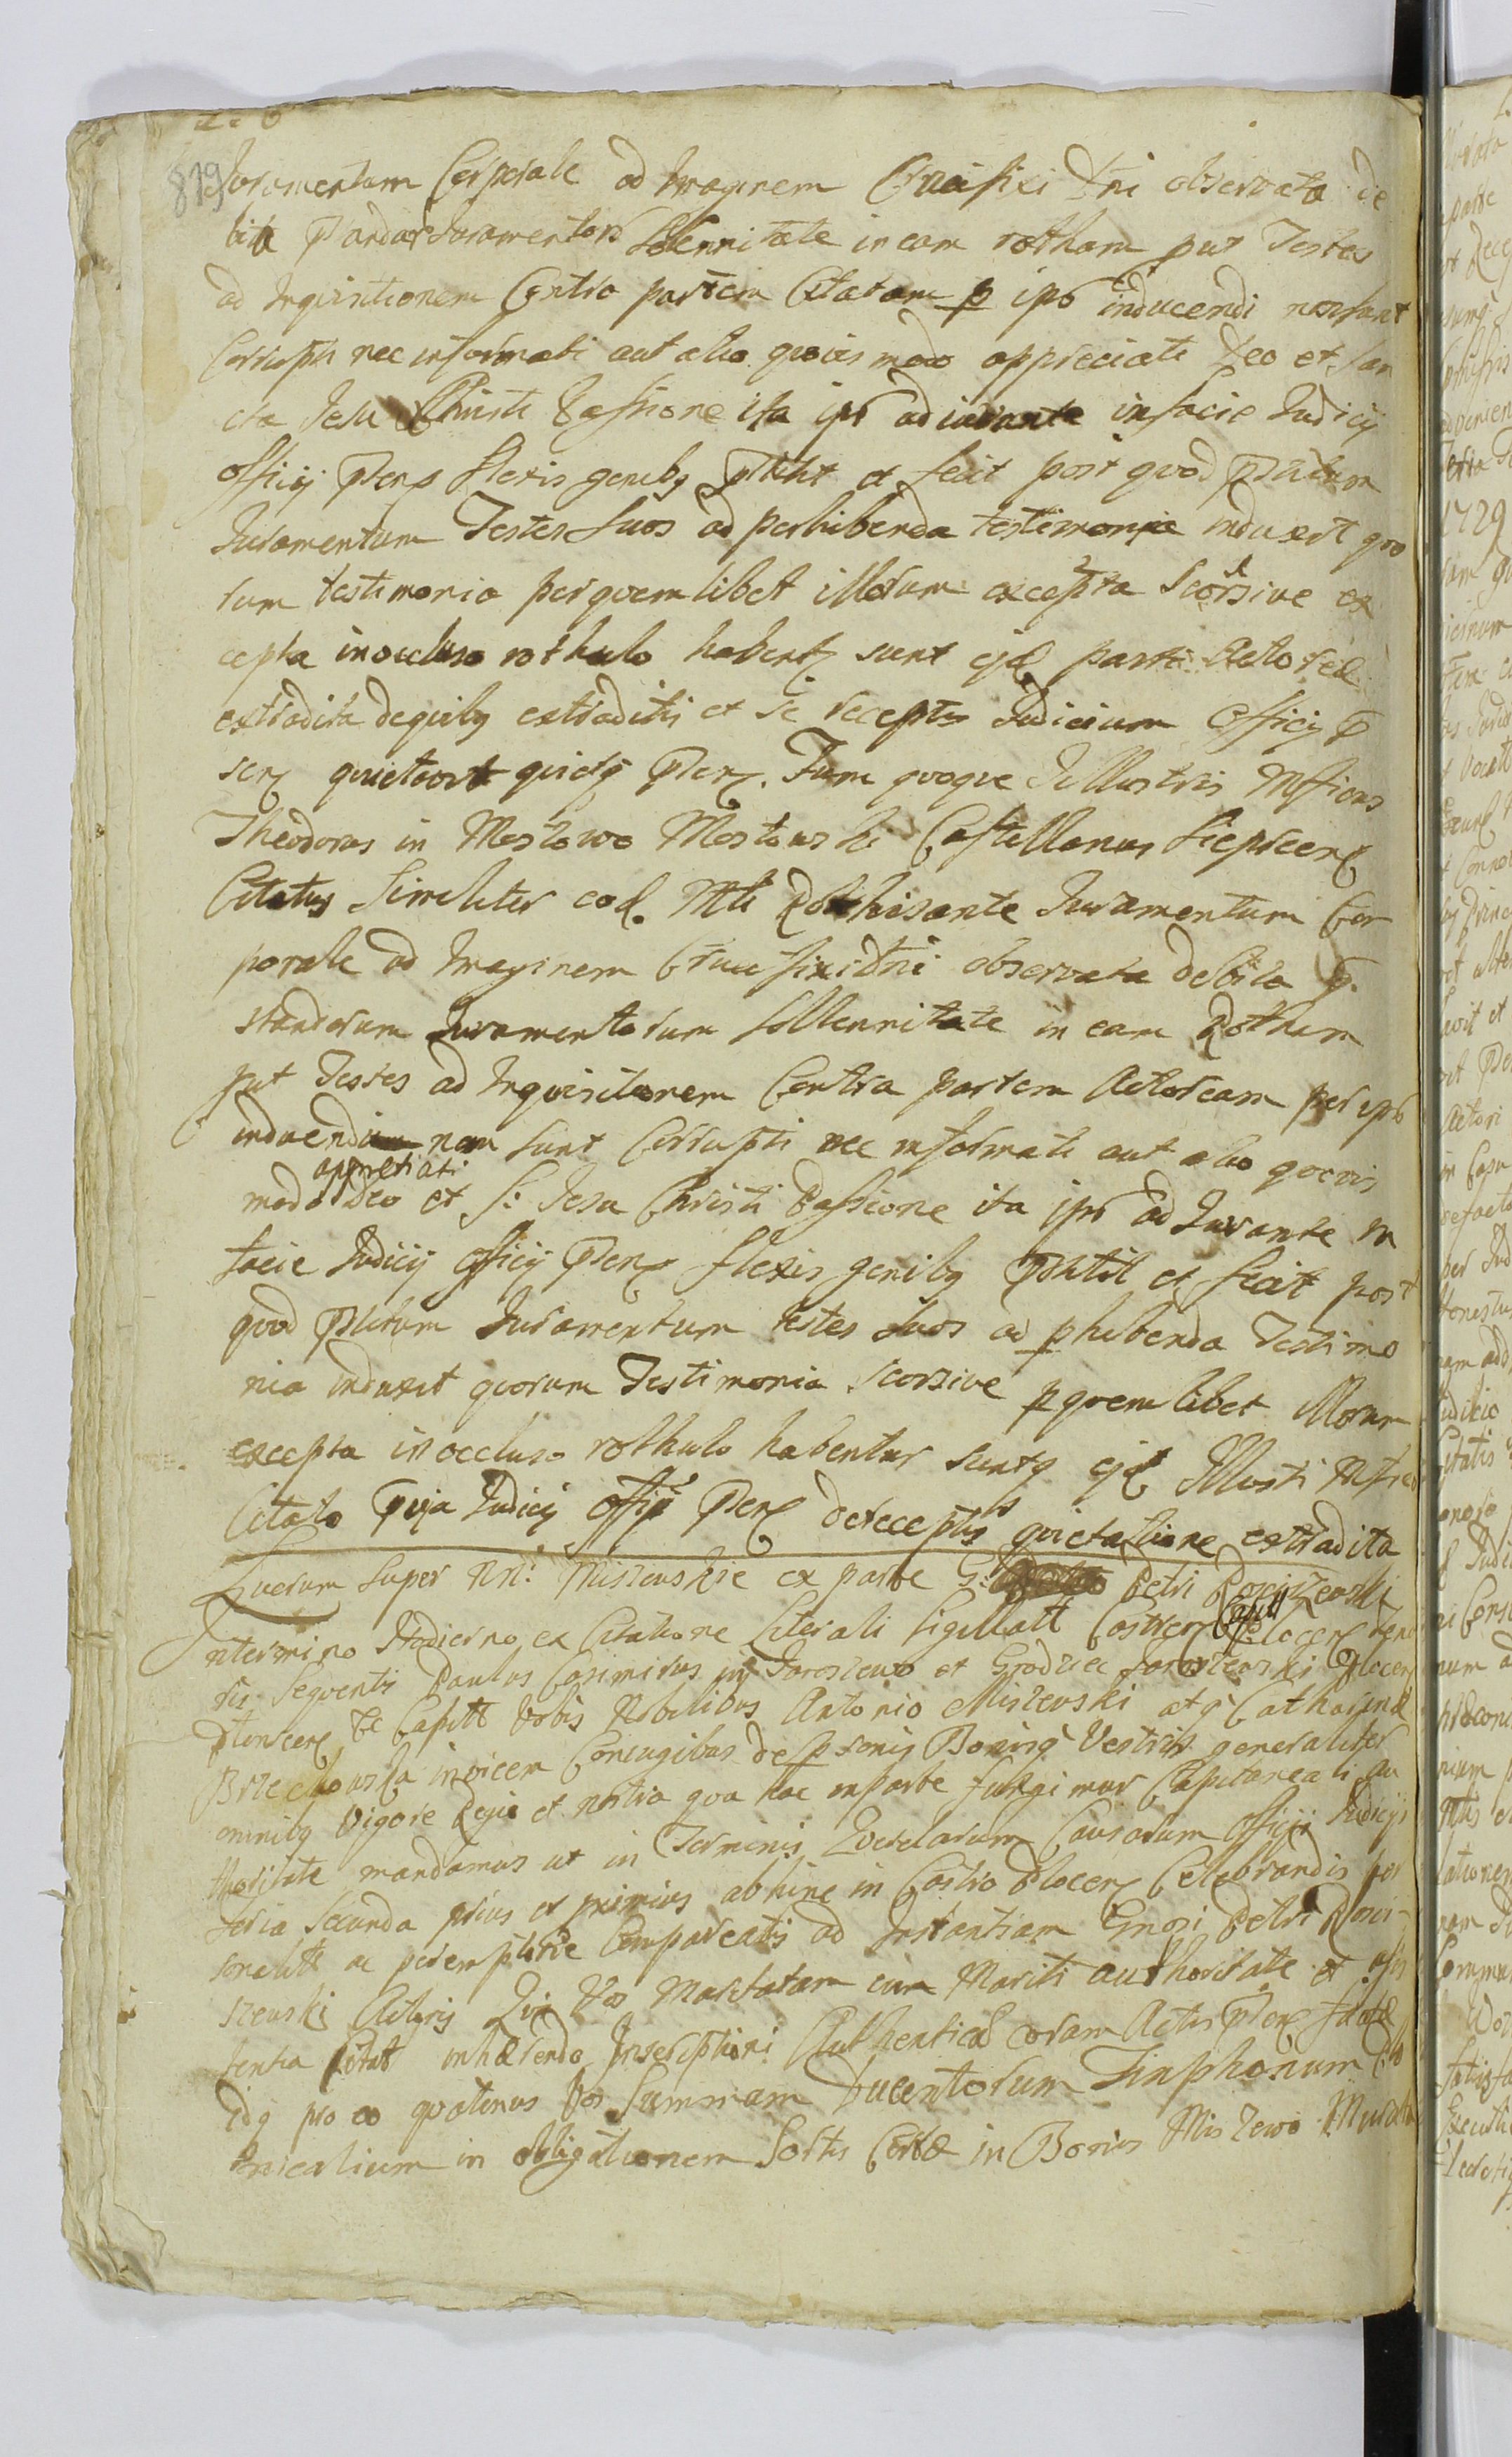 819
Juramentum Corporale ad Imaginem Crucifixi Dni observata de
bita Pandor Juramentor Solennitate in eam rotham put Testes
ad Inquisitionem Contra partem Citatam p ips inducendi non sunt
Corrupti nec informati aut alio quovis modo appreciati Deo et San
cta Jesu Christi Passione ita ips adiuvante in facie Judicij
Officij Pten flexis genibg Pstitit et fecit post quod Pstitum
Juramentum Testes suos ad perhibenda testimonia induxit quo
rum testimonia per quemlibet illorum excepta Seorsive ex
cepta in occluso rothulo habent sunt ejd parti Actoreæ
extradita de quibg extraditis et se receptis Judicium Officij P
sen quietavit quietq Pten. Tum quoque Illustris Mficus
Theodorus in Mostowo Mostowski Castellanus Sieprcen
Citatus Similiter eod. Mtti Rothisante Juramentum Cor
porale ad Imaginem Crucifixi Dni observata debita P.
standorum Juramentorum Sollennitate in eam Rotham
put Testes ad Inquisitionem Contra partem Actoream per ips
inducendi non sunt Corrupti nec informati aut alio quovis
appretiati
modo Deo et S: Jesu Christi Passione ita ips ad Juvante in
facie Judicij Officij Pten flexis genibg Pstitit et fecit post
quod Pstitum Juramentum testes suos ad phibenda Testimo
nia induxit quorum Testimonia Seorsive p quemlibet Illorum
excepta in occluso rothulo habentur suntq ejd Illusti Mfico
Citato Pvia Judicij Officij Pten de receptis quietatione extradita
Lucrum super NN: Miszewskie ex parte G: Petri Pościszewski
In termino Hodierno ex Citatione Literali Sigillatt Castren Capitt Plocen teno
ris Sequentis Paulus Casimirus in Jaroszewo et Grodziec Jaroszewski Plocen
Ptonscen &c Capitt Vobis Nobilibus Antonio Miszewski atq Catharinæ
Brzechowska invicem Conjugibus de psonis Bonisq Vestris generaliter
omnibg Vigore Regia et nostra qua hac in parte fungimur Capitaneali au
thoritate mandamus ut in Terminis Querelarum Causarum Officij Judicijs
feria Secunda prius et proximius abhinc in Castro Plocen Celebrandis per
sonalitt ac peremptorie Compareatis ad Instantiam Gnosi Petri Pości-
szewski Actoris Qui Vos Maritatam cum Mariti authoritate et assis
tentia Citat inhærendo Inscriptioni Authenticæ coram Actis Pten factæ
idq pro eo quatenus Vos Summam Ducentorum Tinphonum
in obligationem Sortis Certæ in Bonis Miszewo Murow